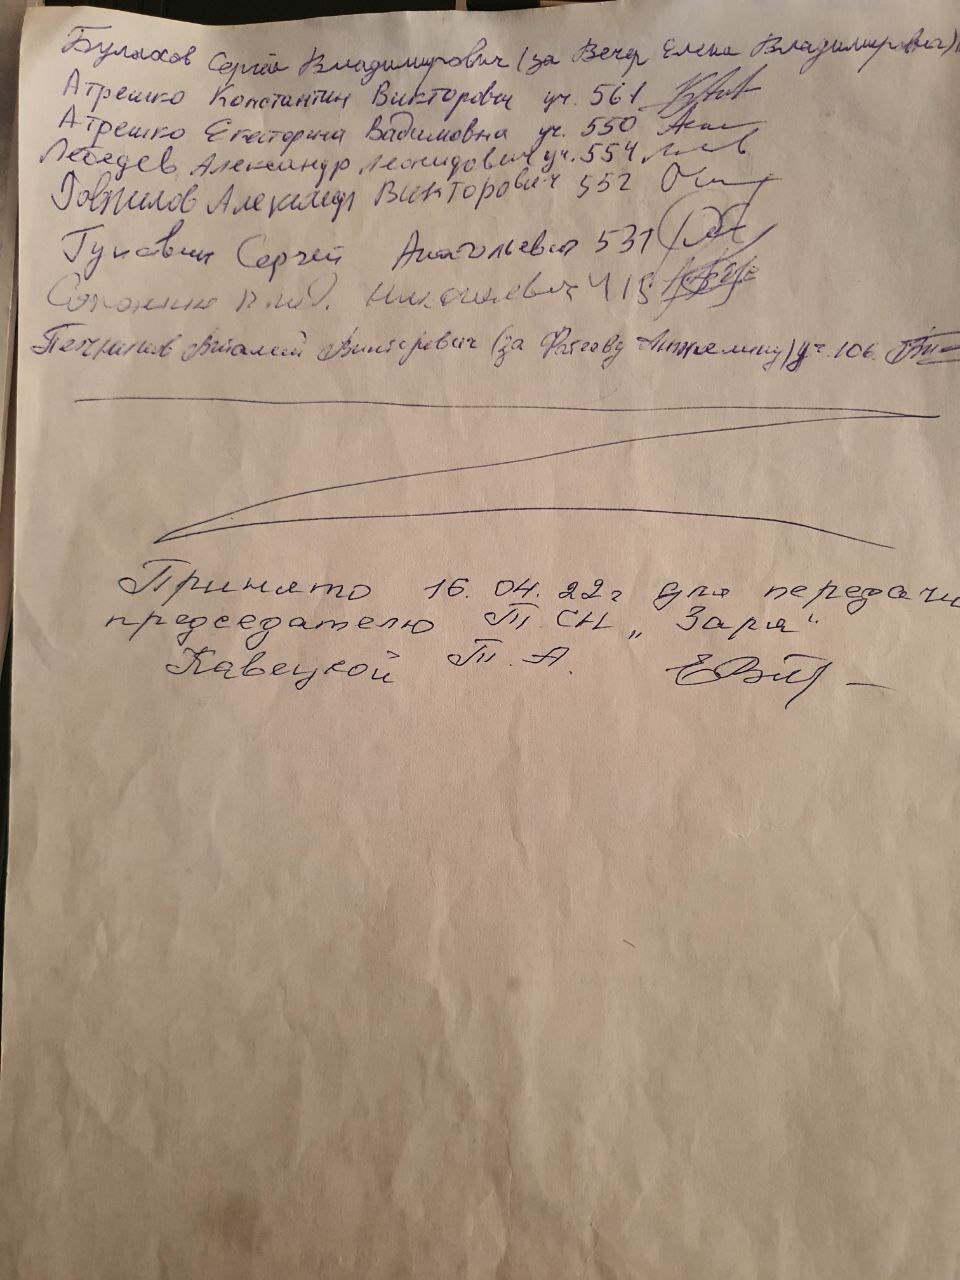 Булахов Сергей Владимирович (за Вечер Елена Владимировна)
Атрешко Константин Викторович уч. 561
Атрешко Екатерина Вадимовна уч. 550
Лебедев Александр Леонидович уч. 554
Гаврилов Александр Викторович 552
Сергей Анатольевич 531
Николаевич 415
Виталий Викторович (за Анжелину) уч. 106
Принято 16.04.22г для передачи
председателю Т.СН „Заря“
Кавецкой Т.А.